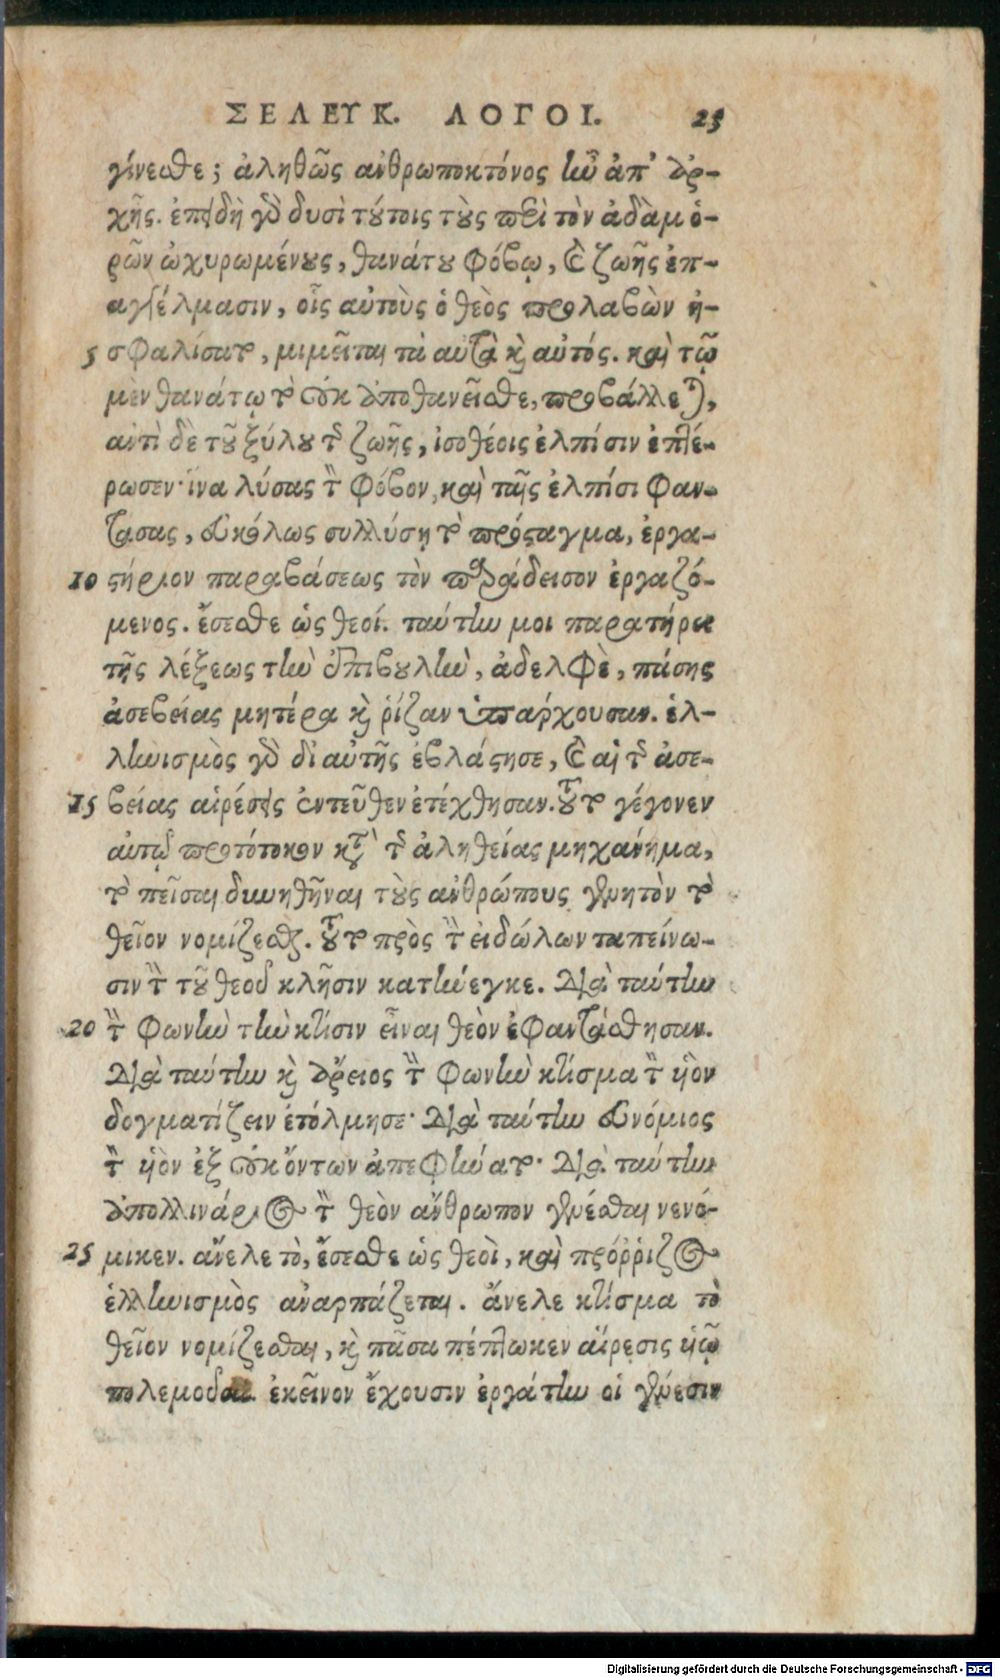 ΣΕΛΕΥΚ. ΛΟΓΟΙ. 25
γίνεσθε; ἀληθῶς ἀνθρωποκτόνος ἦν ἀπ' ἀρ-
χῆς. ἐπειδὴ γὸ δυσὶ τύποις τοὺς περὶ τὸν ἀδὰμ ὁ-
ρῶν ὠχυρωμένους, θανάτου φόβῳ, καὶ ζωῆς ἐπ-
αγγέλμασιν, οἷς αὐτοὺς ὁ θεὸς προλαβὼν ἠ-
5 σφαλίσατο, μιμεῖται τὰ αὐτὰ καὶ αὐτός. καὶ τῷ
μὲν θανάτῳ τὸ οὐκ ἀποθανεῖσθε, προβάλλεται,
ἀντὶ δὲ τοῦ ξύλου τῆς ζωῆς, ἰσοθέοις ἐλπίσιν ἐπτέ-
ρωσεν· ἵνα λύσας τὸν φόβον, καὶ ταῖς ἐλπίσι φαν-
τάσας, εὐκόλως συλλύσῃ τὸ πρόσταγμα, ἐργα-
10 στήριον παραβάσεως τὸν παράδεισον ἐργαζό-
μενος. ἔσεσθε ὡς θεοί. ταύτην μοι παρατήρει
τῆς λέξεως τὴν ἐπιβουλὴν, ἀδελφὲ, πάσης
ἀσεβείας μητέρα καὶ ῥίζαν ὑπάρχουσαν. ἑλ-
ληνισμὸς γὸ δι' αὐτῆς ἐβλάστησε, καὶ αἱ τῆς ἀσε-
15 βείας αἱρέσεις ἐντεῦθεν ἐτέχθησαν. τοῦτο γέγονεν
αὐτῷ πρωτότοκον κατὰ τῆς ἀληθείας μηχάνημα,
τὸ πεῖσαι δυνηθῆναι τοὺς ἀνθρώπους γενητὸν τὸ
θεῖον νομίζεσθαι. τοῦτο πρὸς τὴν εἰδώλων ταπείνω-
σιν τὴν τοῦ θεοῦ κλῆσιν κατήνεγκε. διὰ ταύτην
20 τὴν φωνὴν τὴν κτίσιν εἶναι θεὸν ἐφαντάσθησαν.
διὰ ταύτην καὶ ἄρειος τὴν φωνὴν κτίσμα τὸν υἱὸν
δογματίζειν ἐτόλμησε· διὰ ταύτην εὐνόμιος
τὸν υἱὸν ἐξ οὐκ ὄντων ἀπεφήνατο· διὰ ταύτην
ἀπολλινάριος τὸν θεὸν ἄνθρωπον γενέσθαι νενό-
25 μικεν. ἄνελε τὸ, ἔσεσθε ὡς θεοὶ, καὶ πρόῤῥιζος
ἑλληνισμὸς ἀναρπάζεται. ἄνελε κτίσμα τὸ
θεῖον νομίζεσθαι, καὶ πᾶσα πέπτωκεν αἵρεσις υἱῷ
ἐκεῖνον ἔχουσιν ἐργάτην οἱ γένεσιν